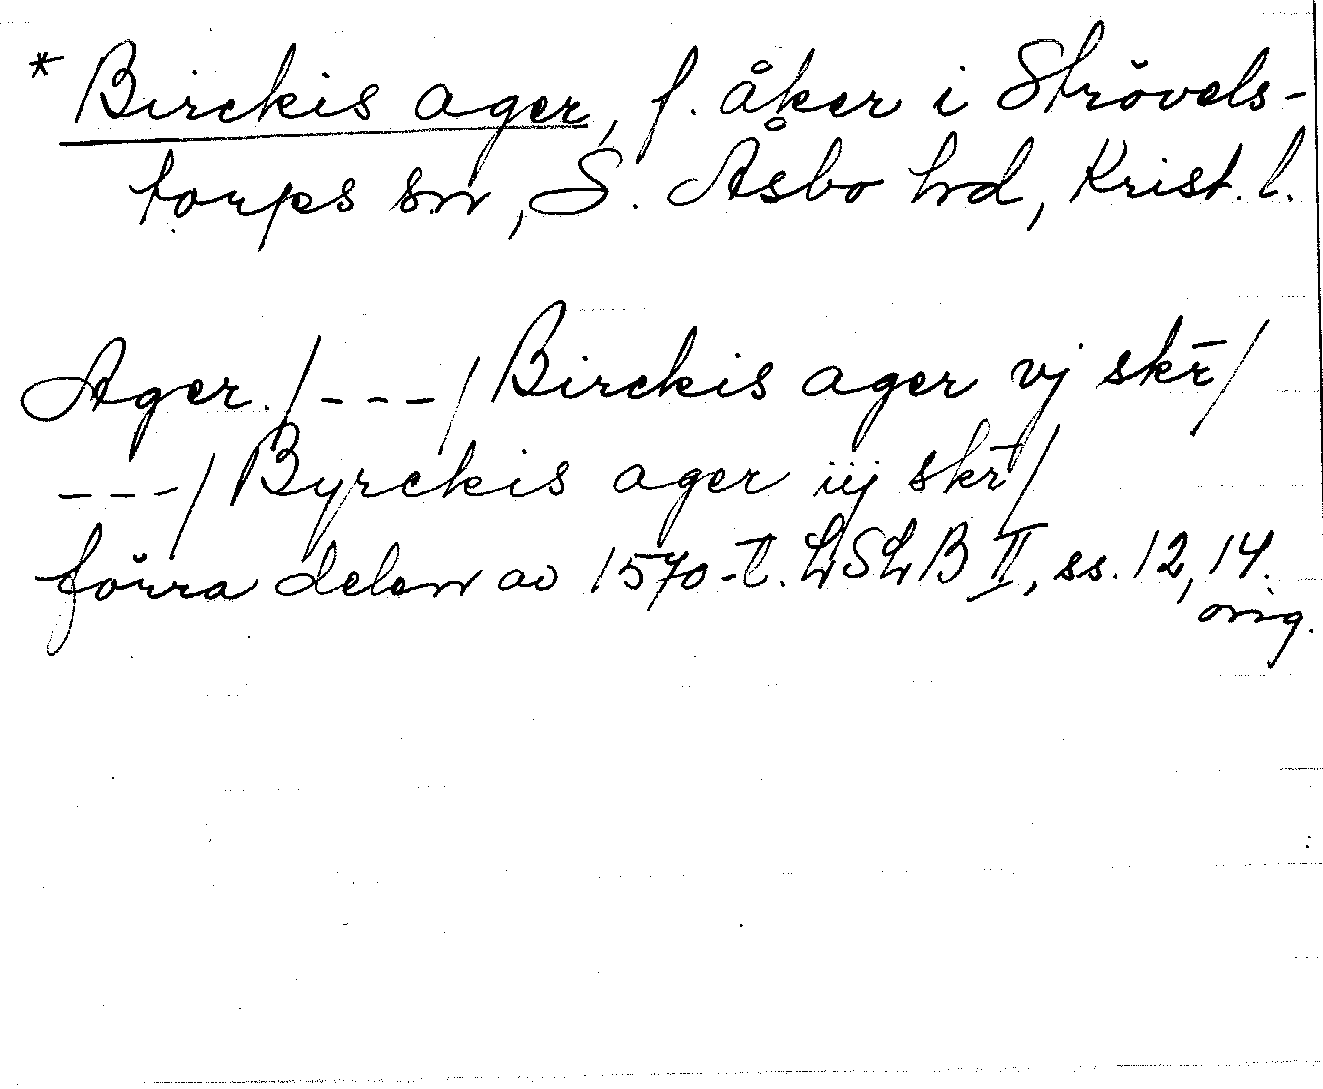 * Birckis ager, f. åker i Strövels-
torps sn, S. Åsbo hd, Krist. l.
Ager. / --- / Birckis ager vj skr̄ /
--- / Byrckis ager iij skr̄ /
förra delen av 1570-t. LSLB II, ss. 12, 14.
orig.